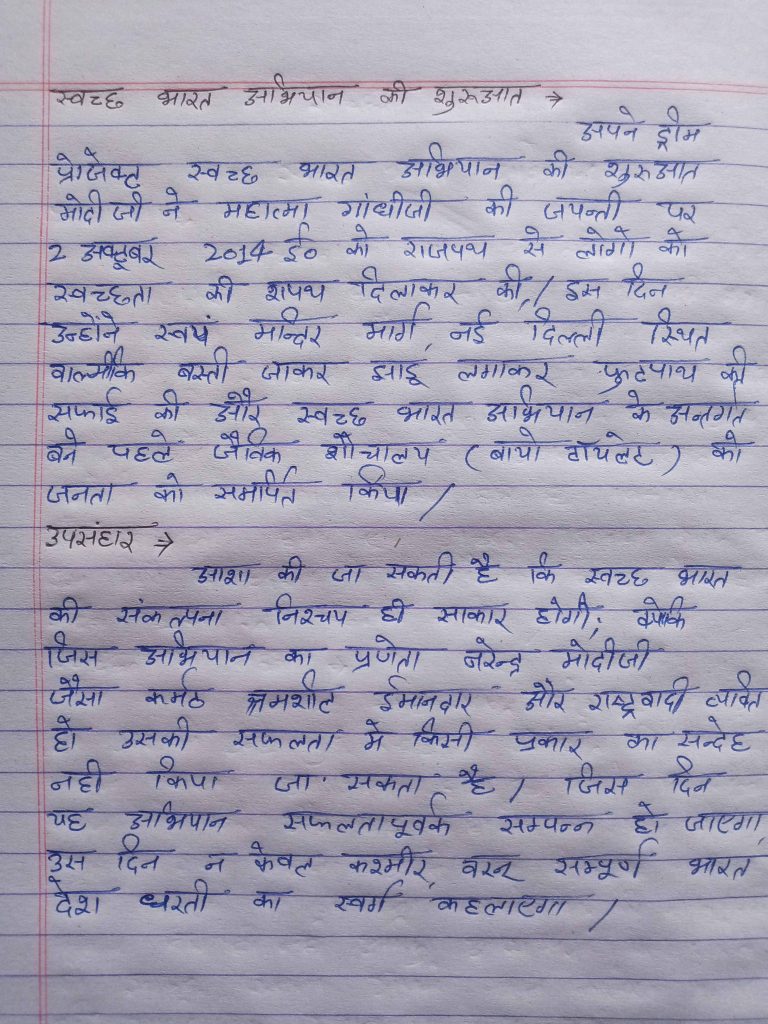 स्वच्छ भारत अभियान की शुरूआत →
अपने ड्रीम
प्रोजेक्ट स्वच्छ भारत अभियान की शुरूआत
मोदी जी ने महात्मा गांधीजी की जयन्ती पर
2 अक्टूबर 2014 ई० को राजपथ से लोगों को
स्वच्छता की शपथ दिलाकर की, / इस दिन
उन्होंने स्वयं मन्दिर मार्ग, नई दिल्ली स्थित
वाल्मीकि बस्ती जाकर झाडू लगाकर फुटपाथ की
सफाई की और स्वच्छ भारत अभियान के अन्तर्गत
बने पहले जैविक शौचालय (बायो टॉयलेट) को
जनता को समर्पित किया /
उपसंहार ⇒
आशा की जा सकती है कि स्वच्छ भारत
की संकल्पना निश्चय ही साकार होगी; क्योंकि
जिस अभियान का प्रणेता नरेन्द्र मोदीजी
जैसा कर्मठ श्रमशील ईमानदार और राष्ट्रवादी व्यक्ति
हो उसकी सफलता मे किसी प्रकार का सन्देह
नही किया जा सकता है / जिस दिन
यह अभियान सफलतापूर्वक सम्पन्न हो जाएगा,
उस दिन न केवल कश्मीर, वरन् सम्पूर्ण भारत
देश धरती का स्वर्ग कहलाएगा /